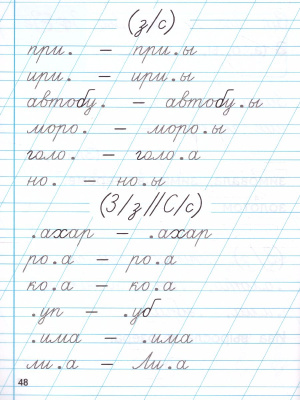 (з/с)
при. – при.ы
ири. – ири.ы
автобу. – автобу.ы
моро. – моро.ы
голо. – голо.а
но. – но.ы
(З/з//С/с)
.ахар – .ахар
ро.а – ро.а
ко.а – ко.а
.уп – .уб
.има – .има
ли.а – Ли.а
48